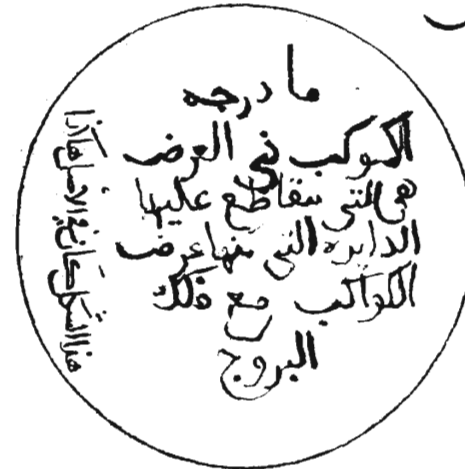 ما درجه
الكوكب في العرض
هي التي يتقاطع عليها
الدايره التي منها عرض
الكواكب مع فلك
البروج
هذا الشكل كان في الاصل هاكذا